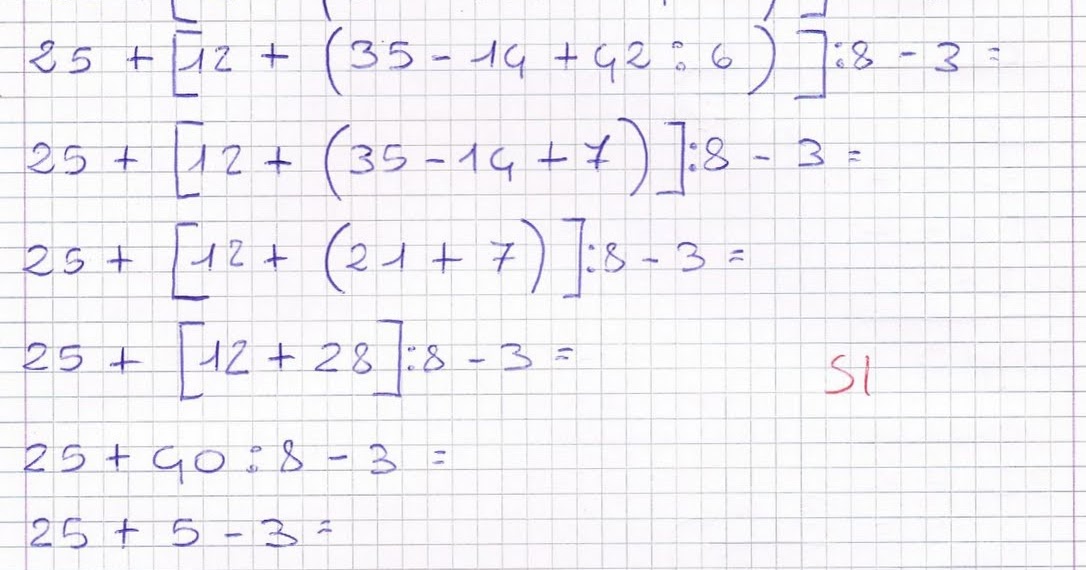 25 + [12 + (35 - 14 + 42 : 6)] : 8 - 3 =
25 + [12 + (35 - 14 + 7)] : 8 - 3 =
25 + [12 + (21 + 7)] : 8 - 3 =
25 + [12 + 28] : 8 - 3 =
SI
25 + 40 : 8 - 3 =
25 + 5 - 3 =